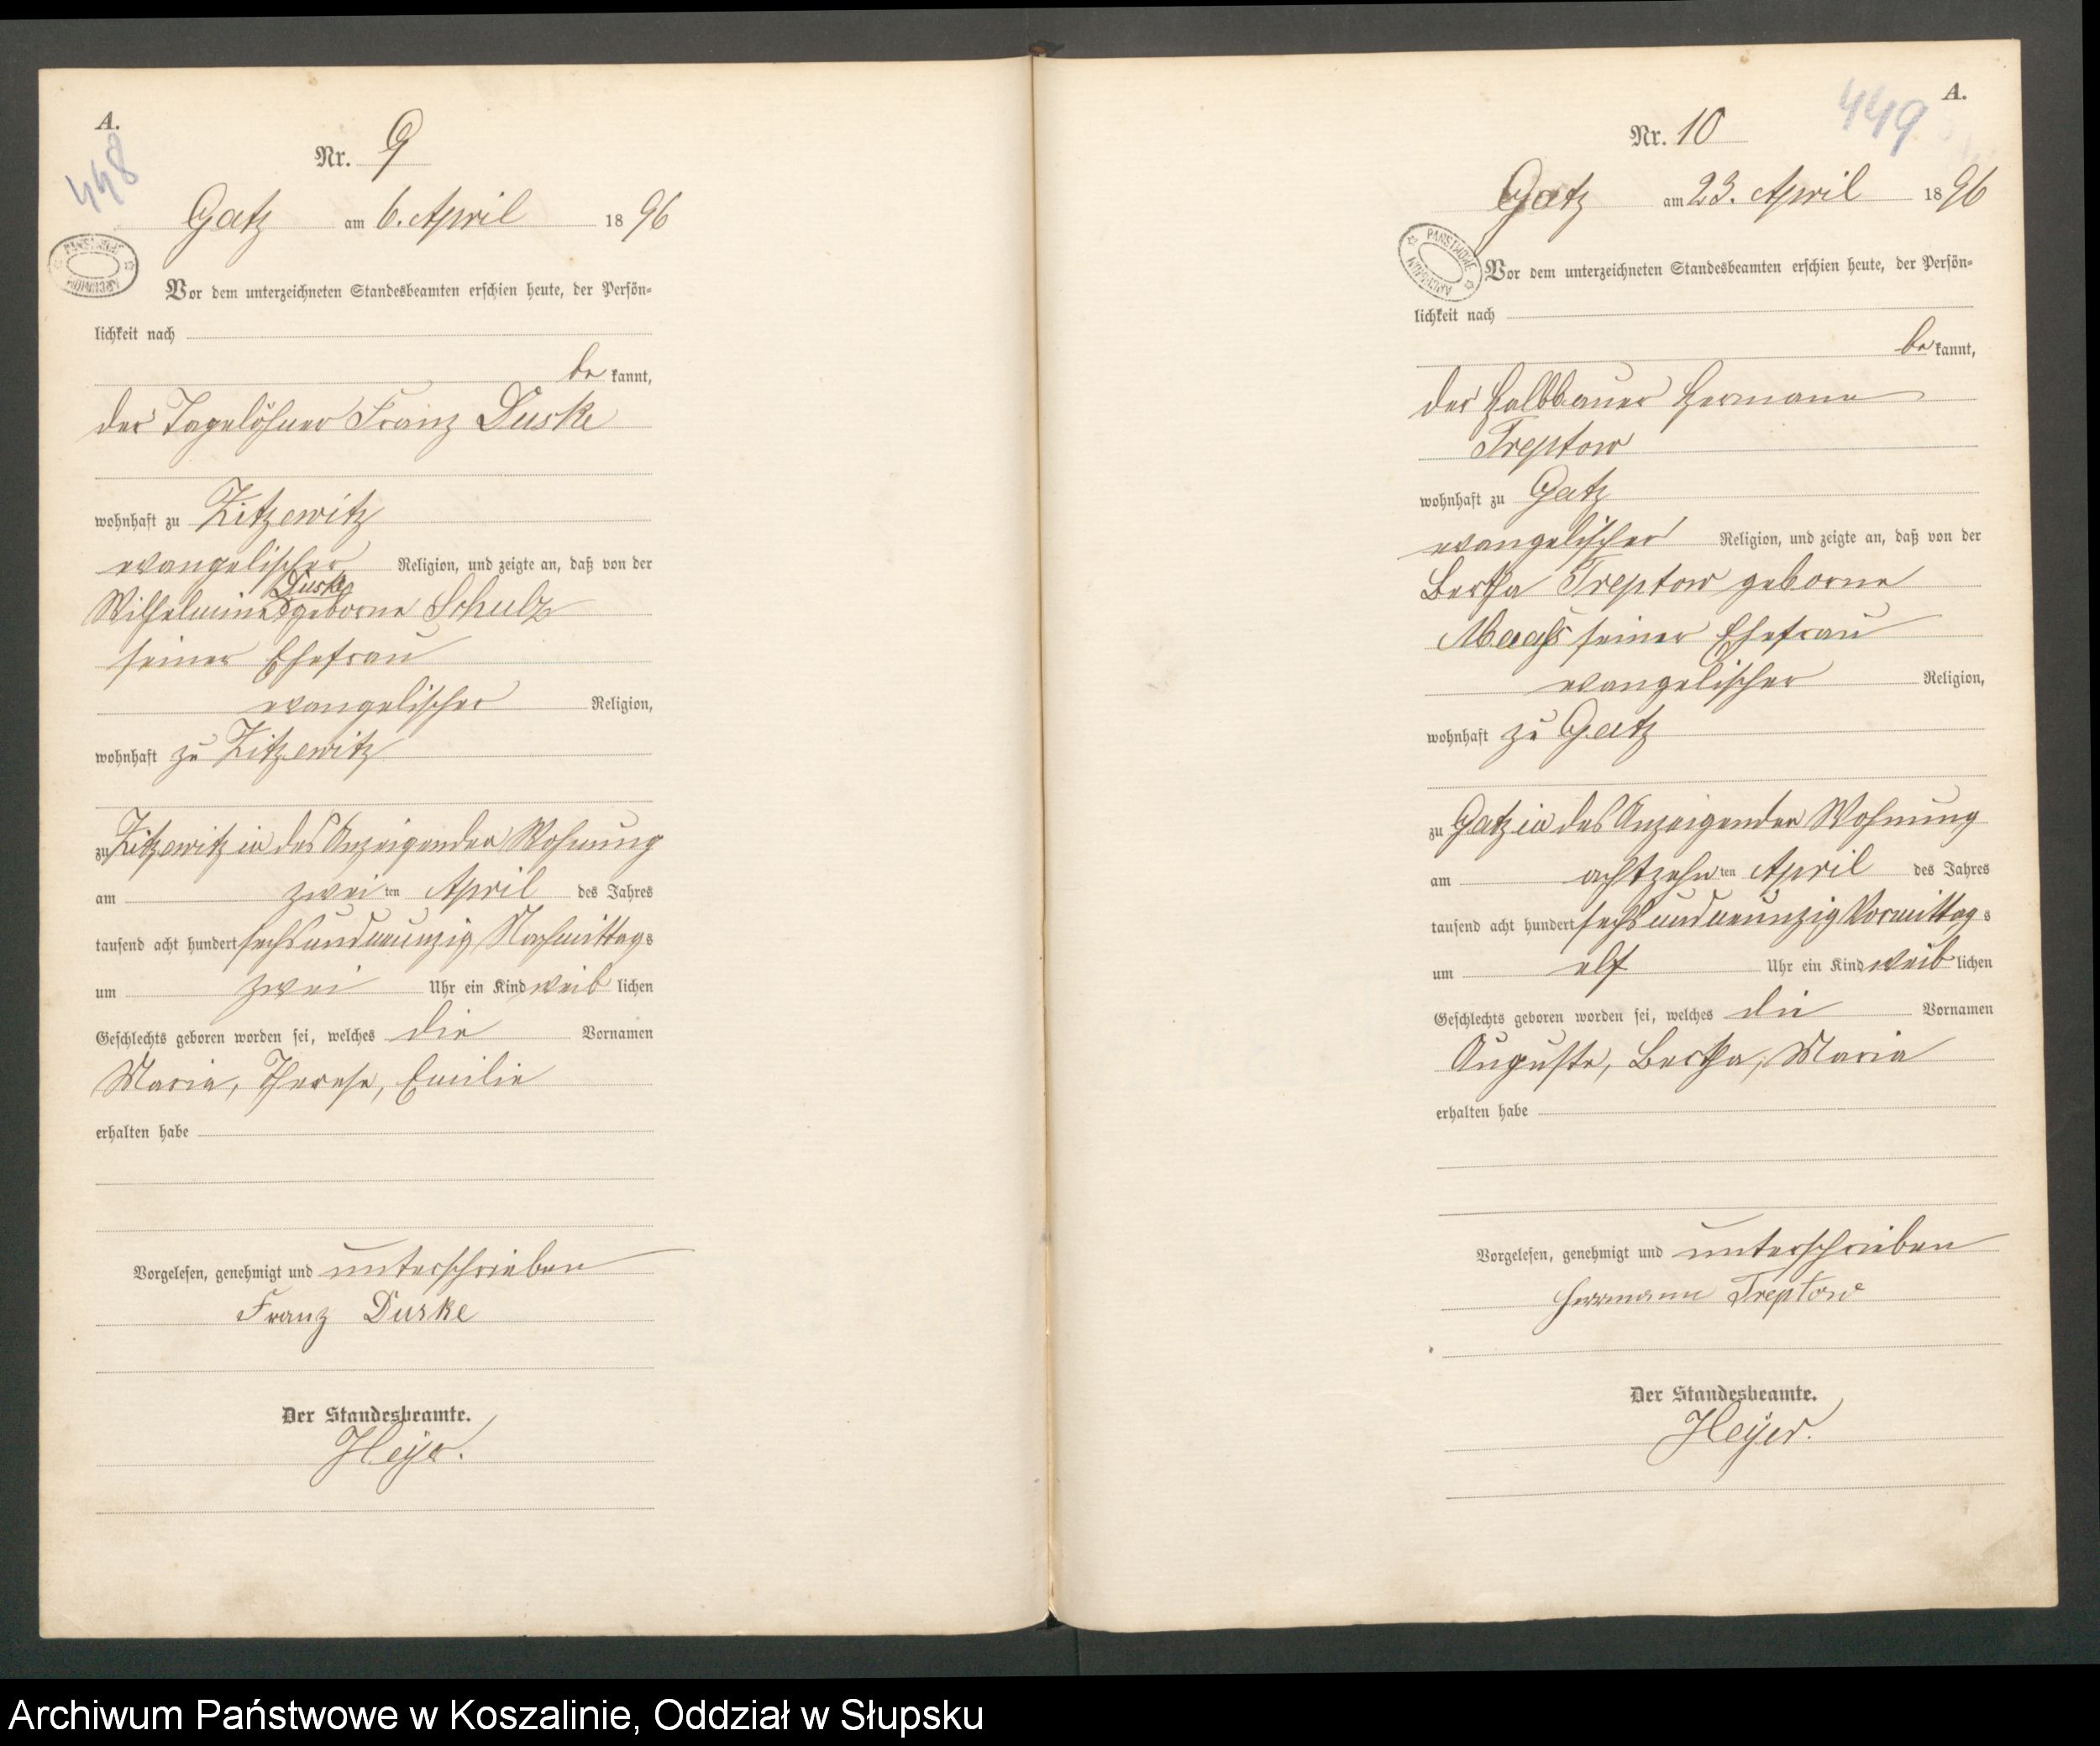 A.
448
Nr. 9
Gatz am 6. April 1896
PAŃSTWOWE
ARCHIWUM
Vor dem unterzeichneten Standesbeamten erschien heute, der Persön=
lichkeit nach
be kannt,
der Tagelöhner Franz Duske
wohnhaft zu Zitzewitz
evangelischer Religion, und zeigte an, daß von der
Duske
Wilhelmine geborne Schulz
seiner Ehefrau
evangelischer Religion,
wohnhaft zu Zitzewitz
zu Zitzewitz in des Anzeigenden Wohnung
am zwei ten April des Jahres
tausend acht hundert sechsundneunzig Nachmittags
um zwei Uhr ein Kind weib lichen
Geschlechts geboren worden sei, welches die Vornamen
Maria, Therese, Emilie
erhalten habe
Vorgelesen, genehmigt und unterschrieben
Franz Duske
Der Standesbeamte.
Heyer.
A.
449
Nr. 10
Gatz am 23. April 1896
PAŃSTWOWE
ARCHIWUM
Vor dem unterzeichneten Standesbeamten erschien heute, der Persön=
lichkeit nach
be kannt,
der Halbbauer Hermann
Treptow
wohnhaft zu Gatz
evangelischer Religion, und zeigte an, daß von der
Bertha Treptow geborne
Maaß seiner Ehefrau
evangelischer Religion,
wohnhaft zu Gatz
zu Gatz in des Anzeigenden Wohnung
am achtzehn ten April des Jahres
tausend acht hundert sechsundneunzig Vormittags
um elf Uhr ein Kind weib lichen
Geschlechts geboren worden sei, welches die Vornamen
Auguste, Bertha, Maria
erhalten habe
Vorgelesen, genehmigt und unterschrieben
Herrmann Treptow
Der Standesbeamte.
Heyer.
Archiwum Państwowe w Koszalinie, Oddział w Słupsku